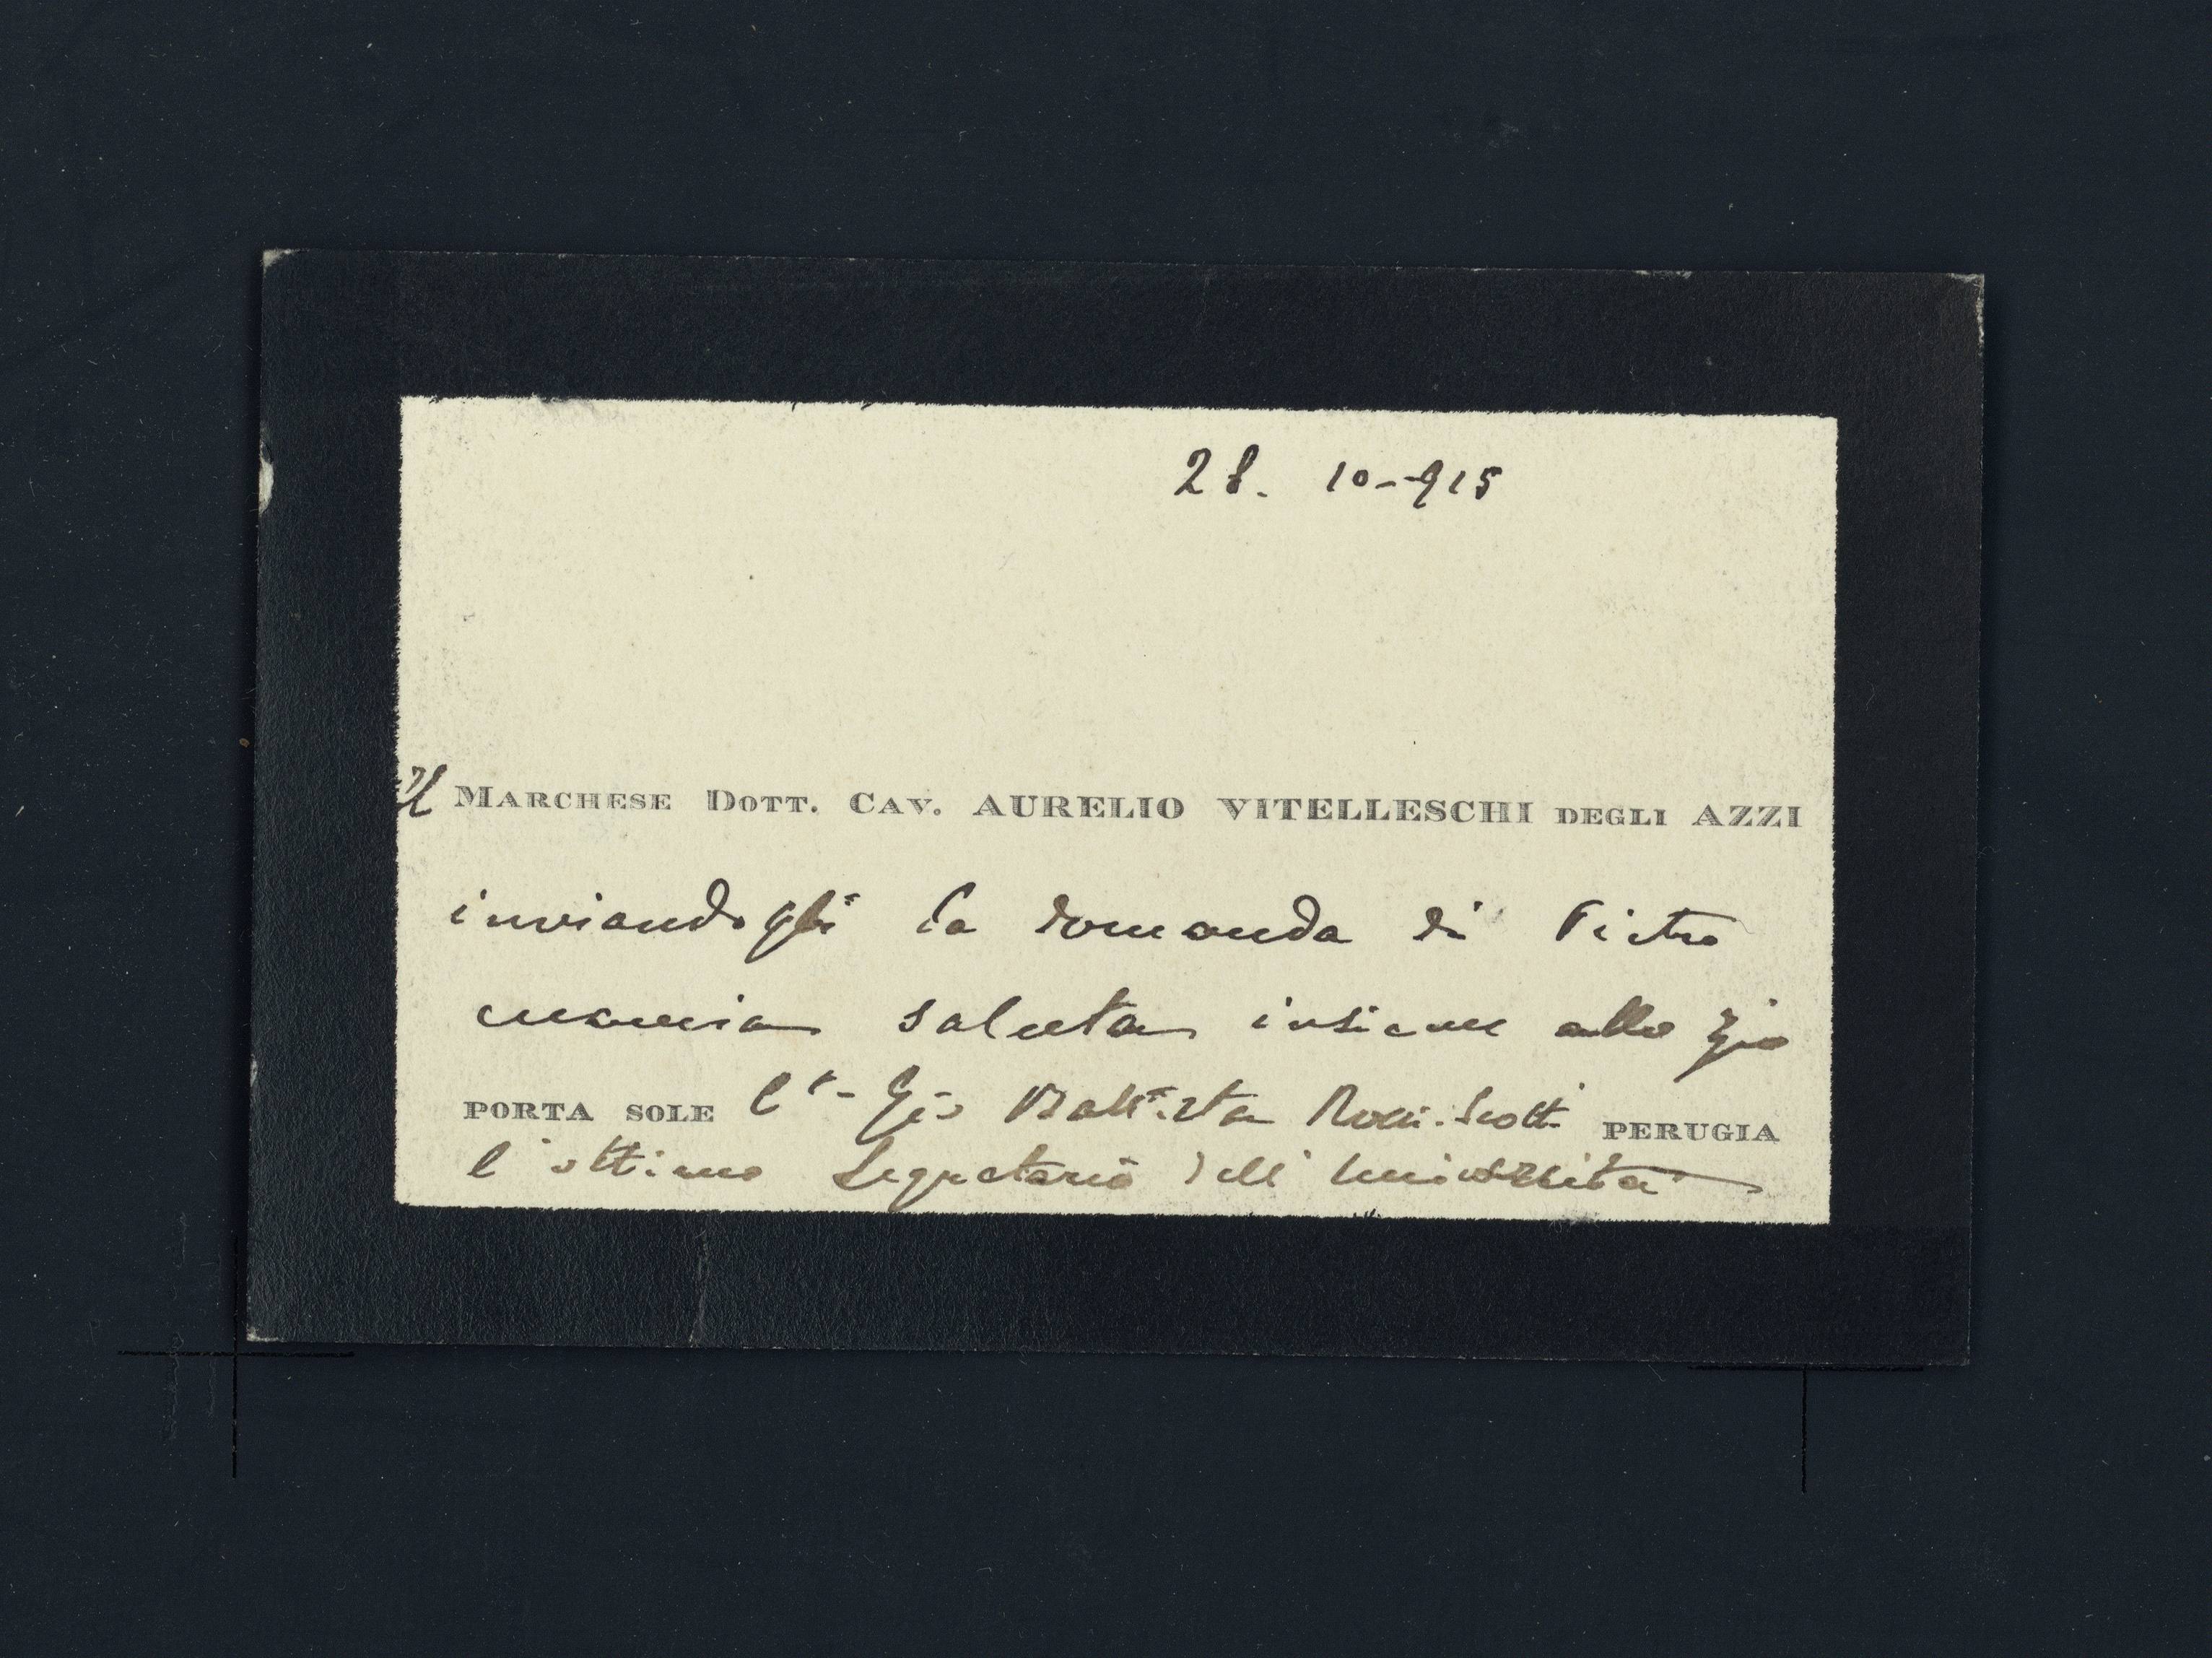 28. 10-915
Il MARCHESE DOTT. CAV. AURELIO VITELLESCHI DEGLI AZZI
inviandogli la domanda di Pietro
saluta insieme allo Zio
PORTA SOLE Cte Gio Battista Rossi-Scotti PERUGIA
l'ottimo Segretario dell'Università